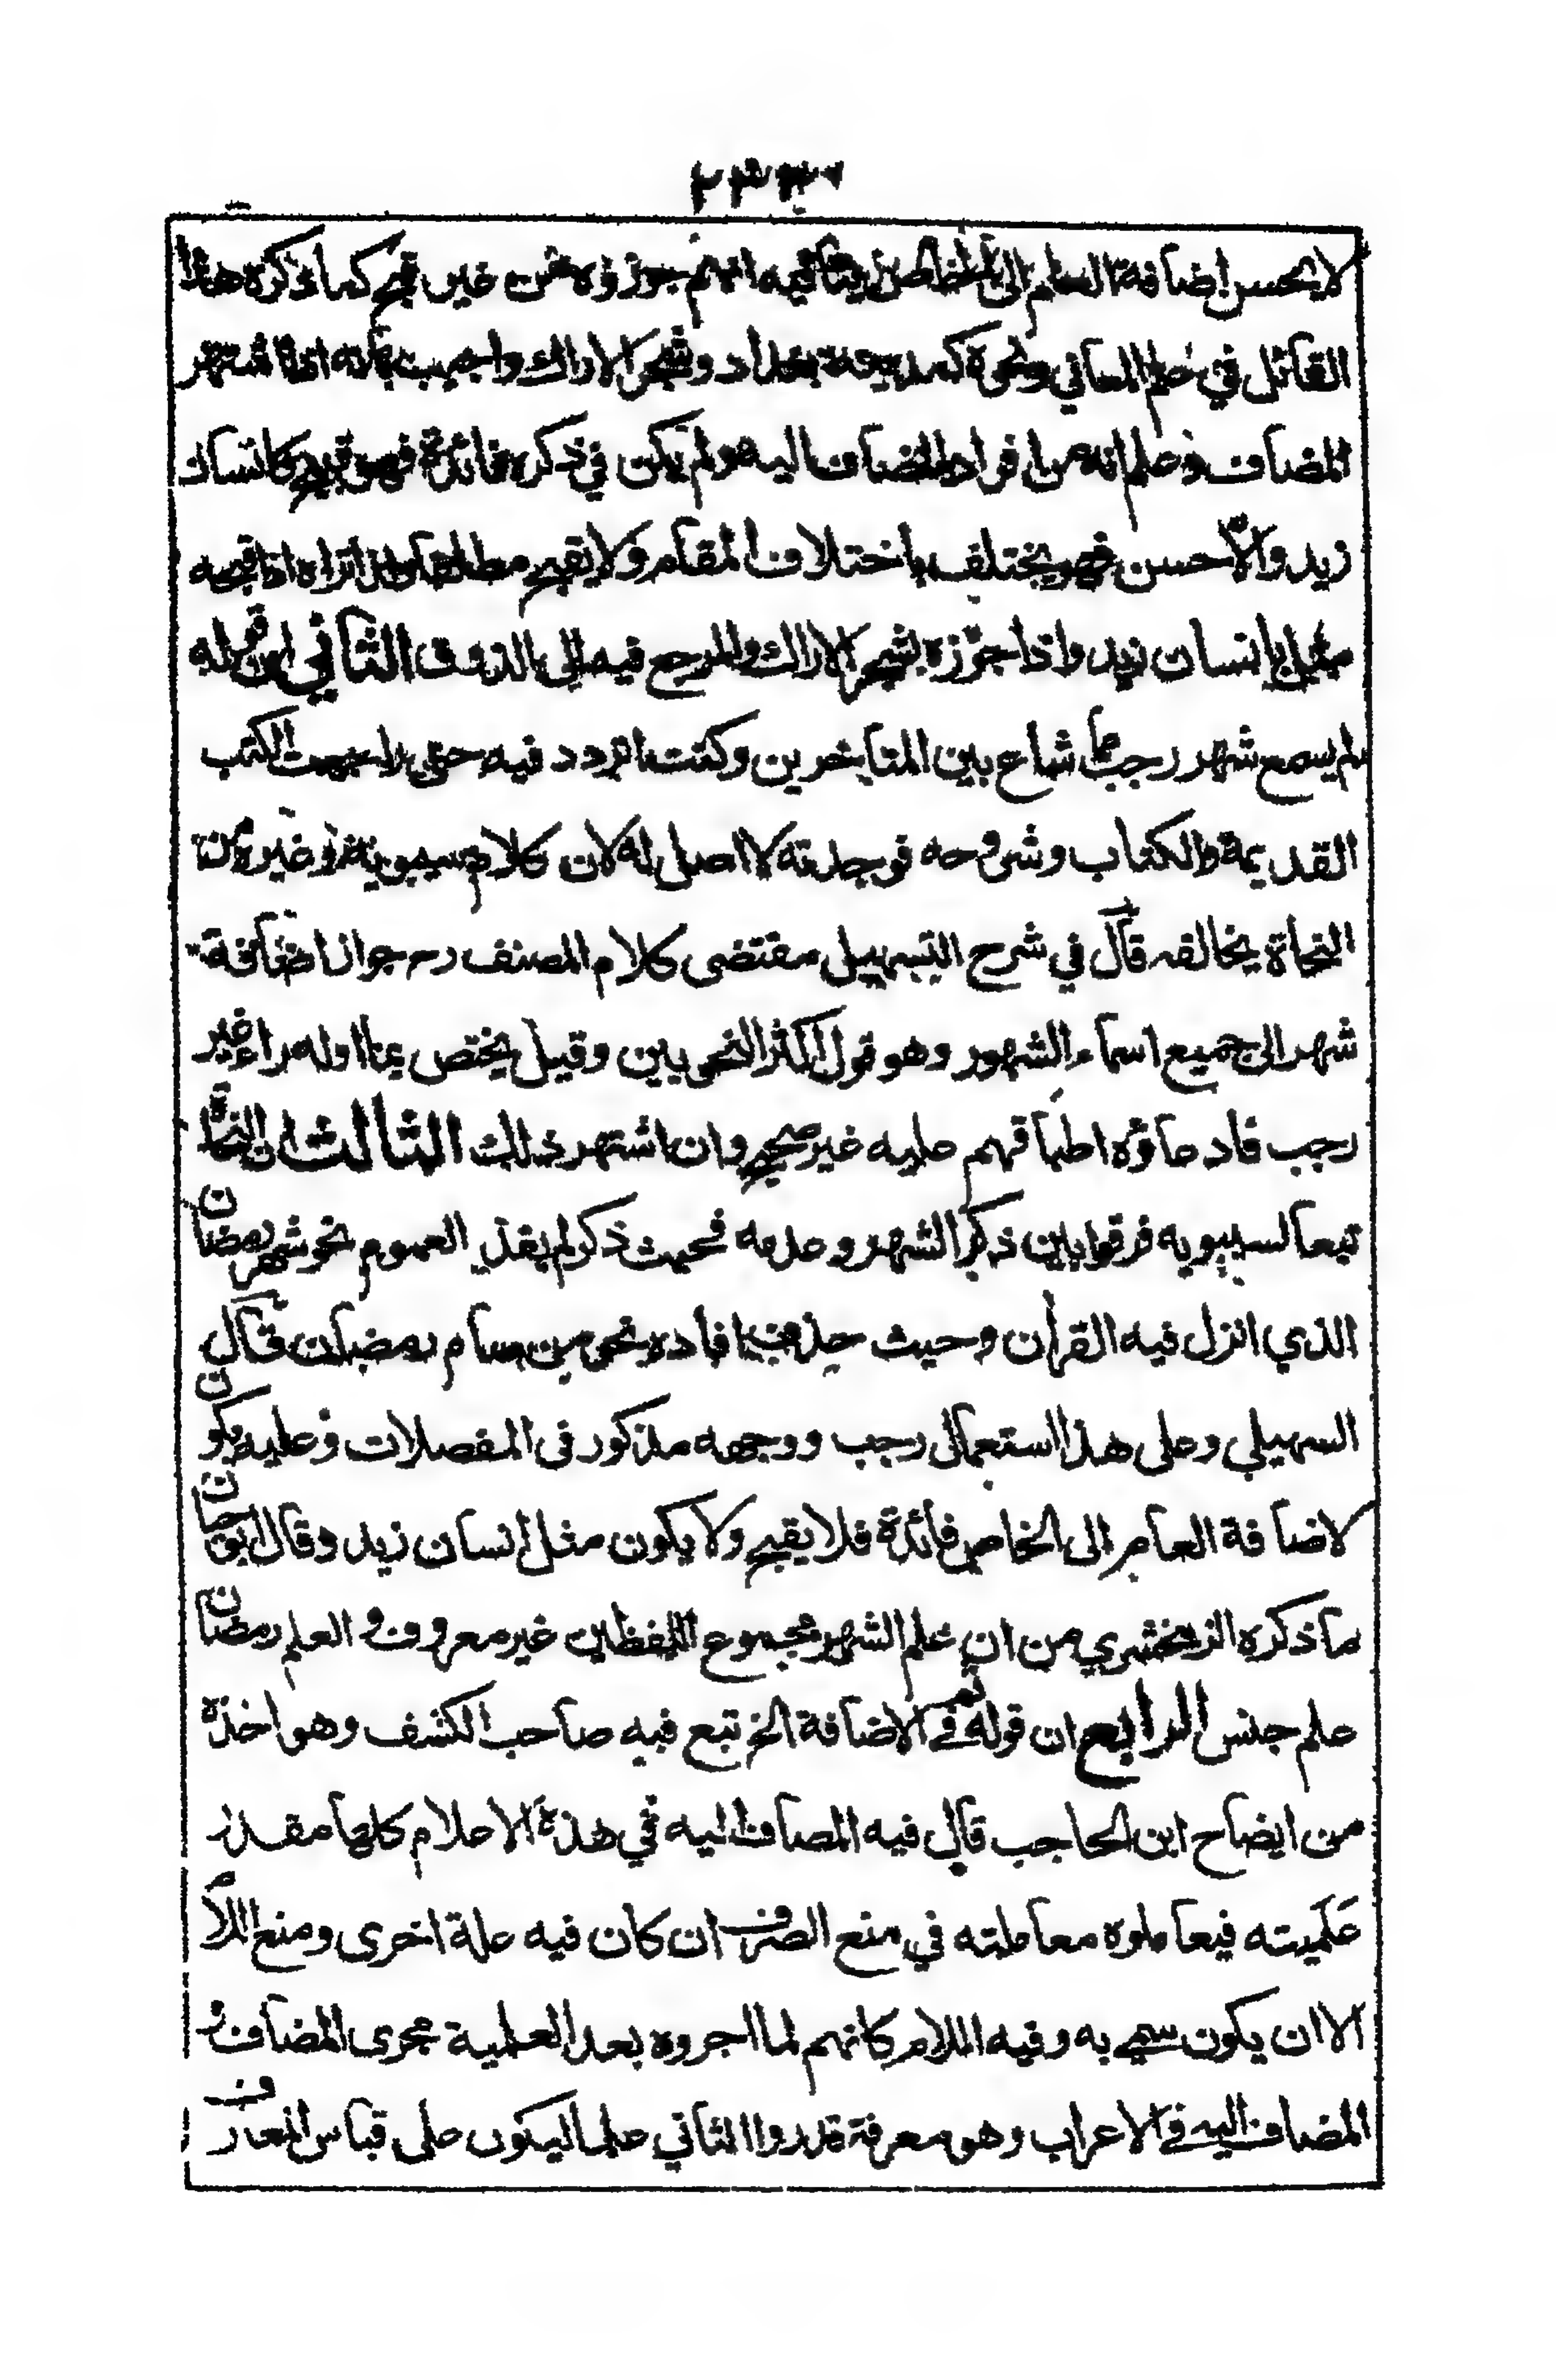 لا يحسن اضافة العام الى الخاص ينافيه انهم جوزوه من غير قبح كما ذكره هذا
القائل في علم المعاني ونحوه كمدينة بغداد وشجر الاراك واجيب بانه اذا اشتهر
المضاف وعلم انه من افراد المضاف اليه ولم يكن في ذكره فائدة فهو قبيح كانسان
زيد والا حسن فهو يختلف باختلاف المقام ولا يقبح مطلقا ولذا تراه اذا قبحه
مثل بانسان زيد واذا جوزه بشجر الاراك والمرجع فيه الى الذوق الثاني ان قوله
لم يسمع شهر رجب مما شاع بين المتاخرين وكنت اتردد فيه حتى راجعت الكتب
القديمة والكتاب وشروحه فوجدته لا اصل له لان كلام سيبويه وغيره من
النحاة يخالفه قال في شرح التسهيل مقتضى كلام المصنف رح جواز اضافة
شهر الى جميع اسماء الشهور وهو قول اكثر النحويين وقيل يختص بما اوله راء غير
رجب فادعاؤه اطباقهم عليه غير صحيح وان اشتهر ذلك الثالث ان النحاة
تبعا لسيبويه فرقوا بين ذكر الشهر وعدمه فحيث ذكر لم يفد العموم نحو شهر رمضان
الذي انزل فيه القران وحيث حذف افاده نحو من صام رمضان قال
السهيلي وعلى هذا استعمال رجب ووجهه مذكور في المفصلات وعليه يكون
لاضافة العام الى الخاص فائدة فلا يقبح ولا يكون مثل انسان زيد وقال ابو حيان
ما ذكره الزمخشري من ان علم الشهر مجموع اللفظين غير معروف والعلم رمضان
علم جنس الرابع ان قوله ثم في الاضافة الخ تبع فيه صاحب الكشف وهو اخذه
من ايضاح ابن الحاجب قال فيه المضاف اليه في هذه الاعلام كلها مقدر
علميته فيعاملوه معاملته في منع الصرف ان كان فيه علة اخرى ومنع اللام
الا ان يكون سمي به وفيه اللام كانهم لما اجروه بعد العلمية مجرى المضاف و
المضاف اليه في الاعراب وهو معرفة قدروا الثاني علما ليكون على قياس المعارف